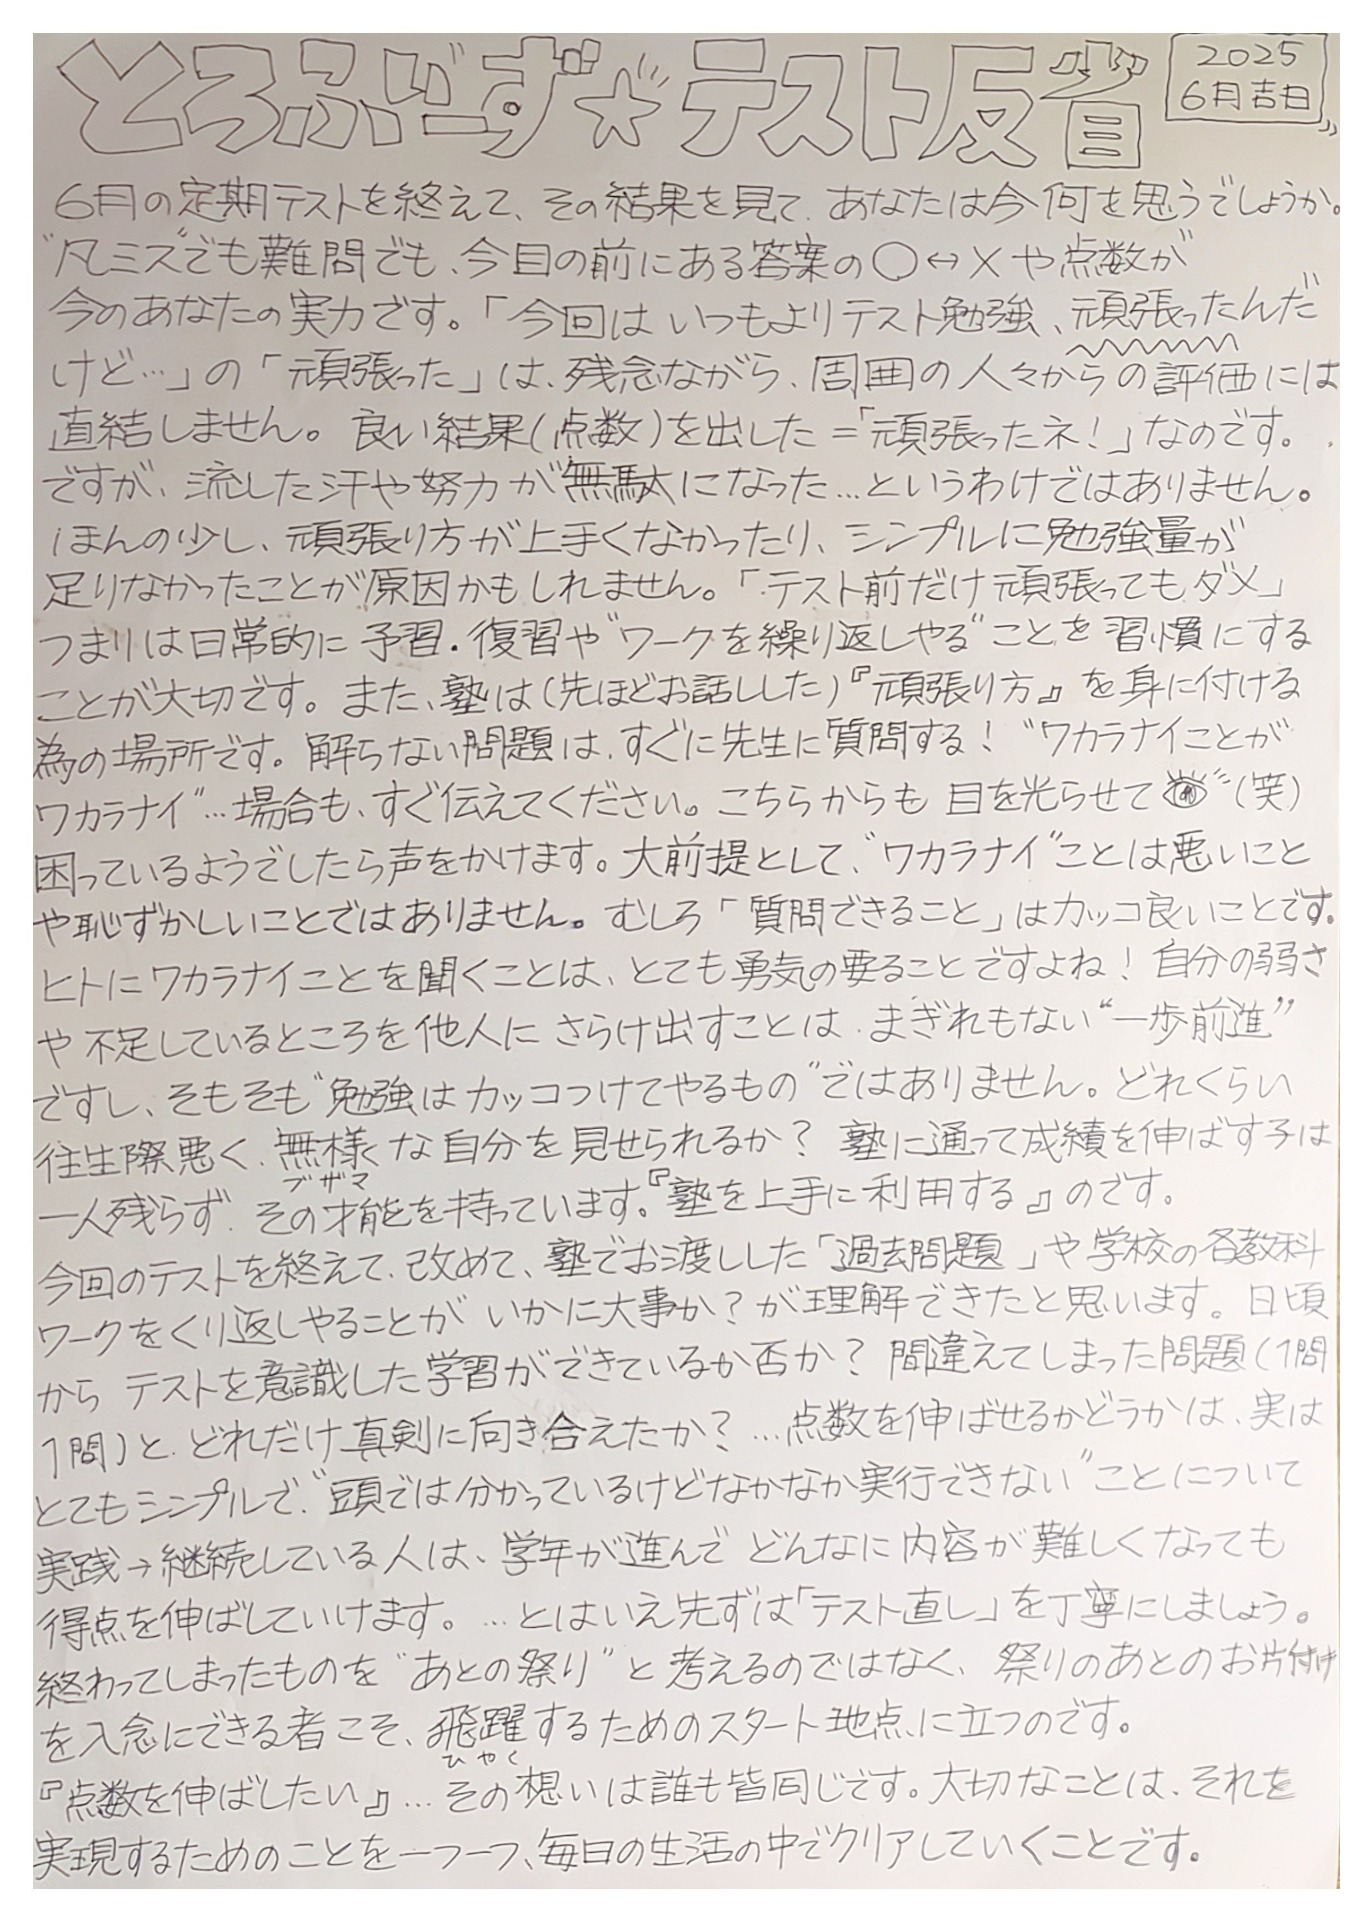 とろふぃーず☆テスト反省
2025
6月吉日
6月の定期テストを終えて、その結果を見て、あなたは今何を思うでしょうか。
"凡ミス"でも難問でも、今目の前にある答案の○↔×や点数が
今のあなたの実力です。「今回はいつもよりテスト勉強、頑張ったんだ
けど…」の「頑張った」は、残念ながら、周囲の人々からの評価には
直結しません。良い結果(点数)を出した=「頑張ったネ!」なのです。
ですが、流した汗や努力が無駄になった…というわけではありません。
ほんの少し、頑張り方が上手くなかったり、シンプルに勉強量が
足りなかったことが原因かもしれません。「テスト前だけ頑張ってもダメ」
つまりは日常的に予習・復習や"ワークを繰り返しやる"ことを習慣にする
ことが大切です。また、塾は(先ほどお話しした)『頑張り方』を身に付ける
為の場所です。解らない問題は、すぐに先生に質問する!"ワカラナイことが
ワカラナイ"…場合も、すぐ伝えてください。こちらからも目を光らせて(笑)
困っているようでしたら声をかけます。大前提として、"ワカラナイ"ことは悪いこと
や恥ずかしいことではありません。むしろ「質問できること」はカッコ良いことです。
ヒトにワカラナイことを聞くことは、とても勇気の要ることですよね!自分の弱さ
や不足しているところを他人にさらけ出すことは、まぎれもない"一歩前進"
ですし、そもそも"勉強はカッコつけてやるもの"ではありません。どれくらい
往生際悪く、無様な自分を見せられるか?塾に通って成績を伸ばす子は
ブザマ
一人残らず、その才能を持っています。『塾を上手に利用する』のです。
今回のテストを終えて、改めて、塾でお渡しした「過去問題」や学校の各教科
ワークをくり返しやることがいかに大事か?が理解できたと思います。日頃
からテストを意識した学習ができているか否か?間違えてしまった問題(1問
1問)と、どれだけ真剣に向き合えたか?…点数を伸ばせるかどうかは、実は
とてもシンプルで、"頭では分かっているけどなかなか実行できない"ことについて
実践→継続している人は、学年が進んでどんなに内容が難しくなっても
得点を伸ばしていけます。…とはいえ先ずは「テスト直し」を丁寧にしましょう。
終わってしまったものを"あとの祭り"と考えるのではなく、祭りのあとのお片付け
を入念にできる者こそ、飛躍するためのスタート地点に立つのです。
ひやく
『点数を伸ばしたい』…その想いは誰も皆同じです。大切なことは、それを
実現するためのことを一つ一つ、毎日の生活の中でクリアしていくことです。